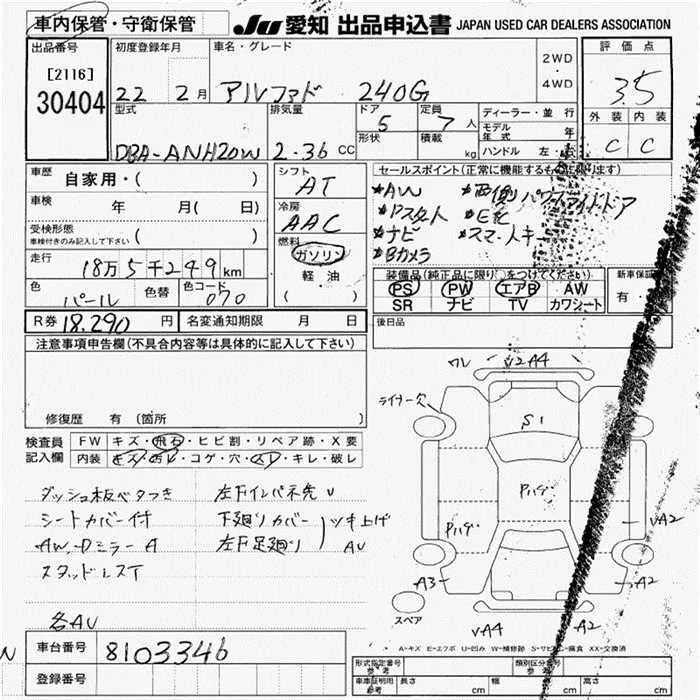 車内保管・守衛保管
JU 愛知 出品申込書 JAPAN USED CAR DEALERS ASSOCIATION
出品番号
[2116]
30404
初度登録年月
22 2月
車名・グレード
アルファド 240G
2WD
・
4WD
評価点
3.5
外装 内装
C C
型式
DBA-ANH20W
排気量
2.36 CC
ドア
5
形状
定員
7人
積載
kg
ディーラー・並行
モデル年式 年
ハンドル 左・右
車歴
自家用・( )
車検 年 月( 日)
受検形態
車検付きのみ記入して下さい ( )
走行
18万5千249km
色
パール
色替
色コード
070
R券 18.290円
名変通知期限 月 日
シフト
AT
冷房
AAC
燃料
ガソリン
軽・油
( )
セールスポイント(正常に機能するものに限ります)
*AW *両側パワースライドドア
*Pスタート *ETC
*ナビ *スマートキー
*Bカメラ
装備品(純正品に限り○をつけてください)
PS PW エアB AW
SR ナビ TV カワシート
新車保証
有・
後日品
注意事項申告欄(不具合内容等は具体的に記入して下さい)
修復歴 有 (箇所 )
検査員記入欄
FW キズ・飛石・ヒビ割・リペア跡・X要
内装 キズ・汚レ・コゲ・穴・スレ・キレ・破レ
ダッシュ板ベタつき
シートカバー付
AW・Dミラー A
スタッドレスT
各AU
左下インパネ先U
下廻りカバー
左下足廻り
ツキ上げ
AU
ワレ
A4
ライナー欠
S1
Pハゲ
Pハゲ
A2
A3
A2
スペア
A4
A2
A-キズ E-エクボ U-凹み W-補修跡 S-サビ C-腐食 XX-交換済
車台番号 8103346
登録番号
形式指定番号
参考
類別区分番号
参考
車庫証明用
参考
長さ cm 幅 cm 高さ cm